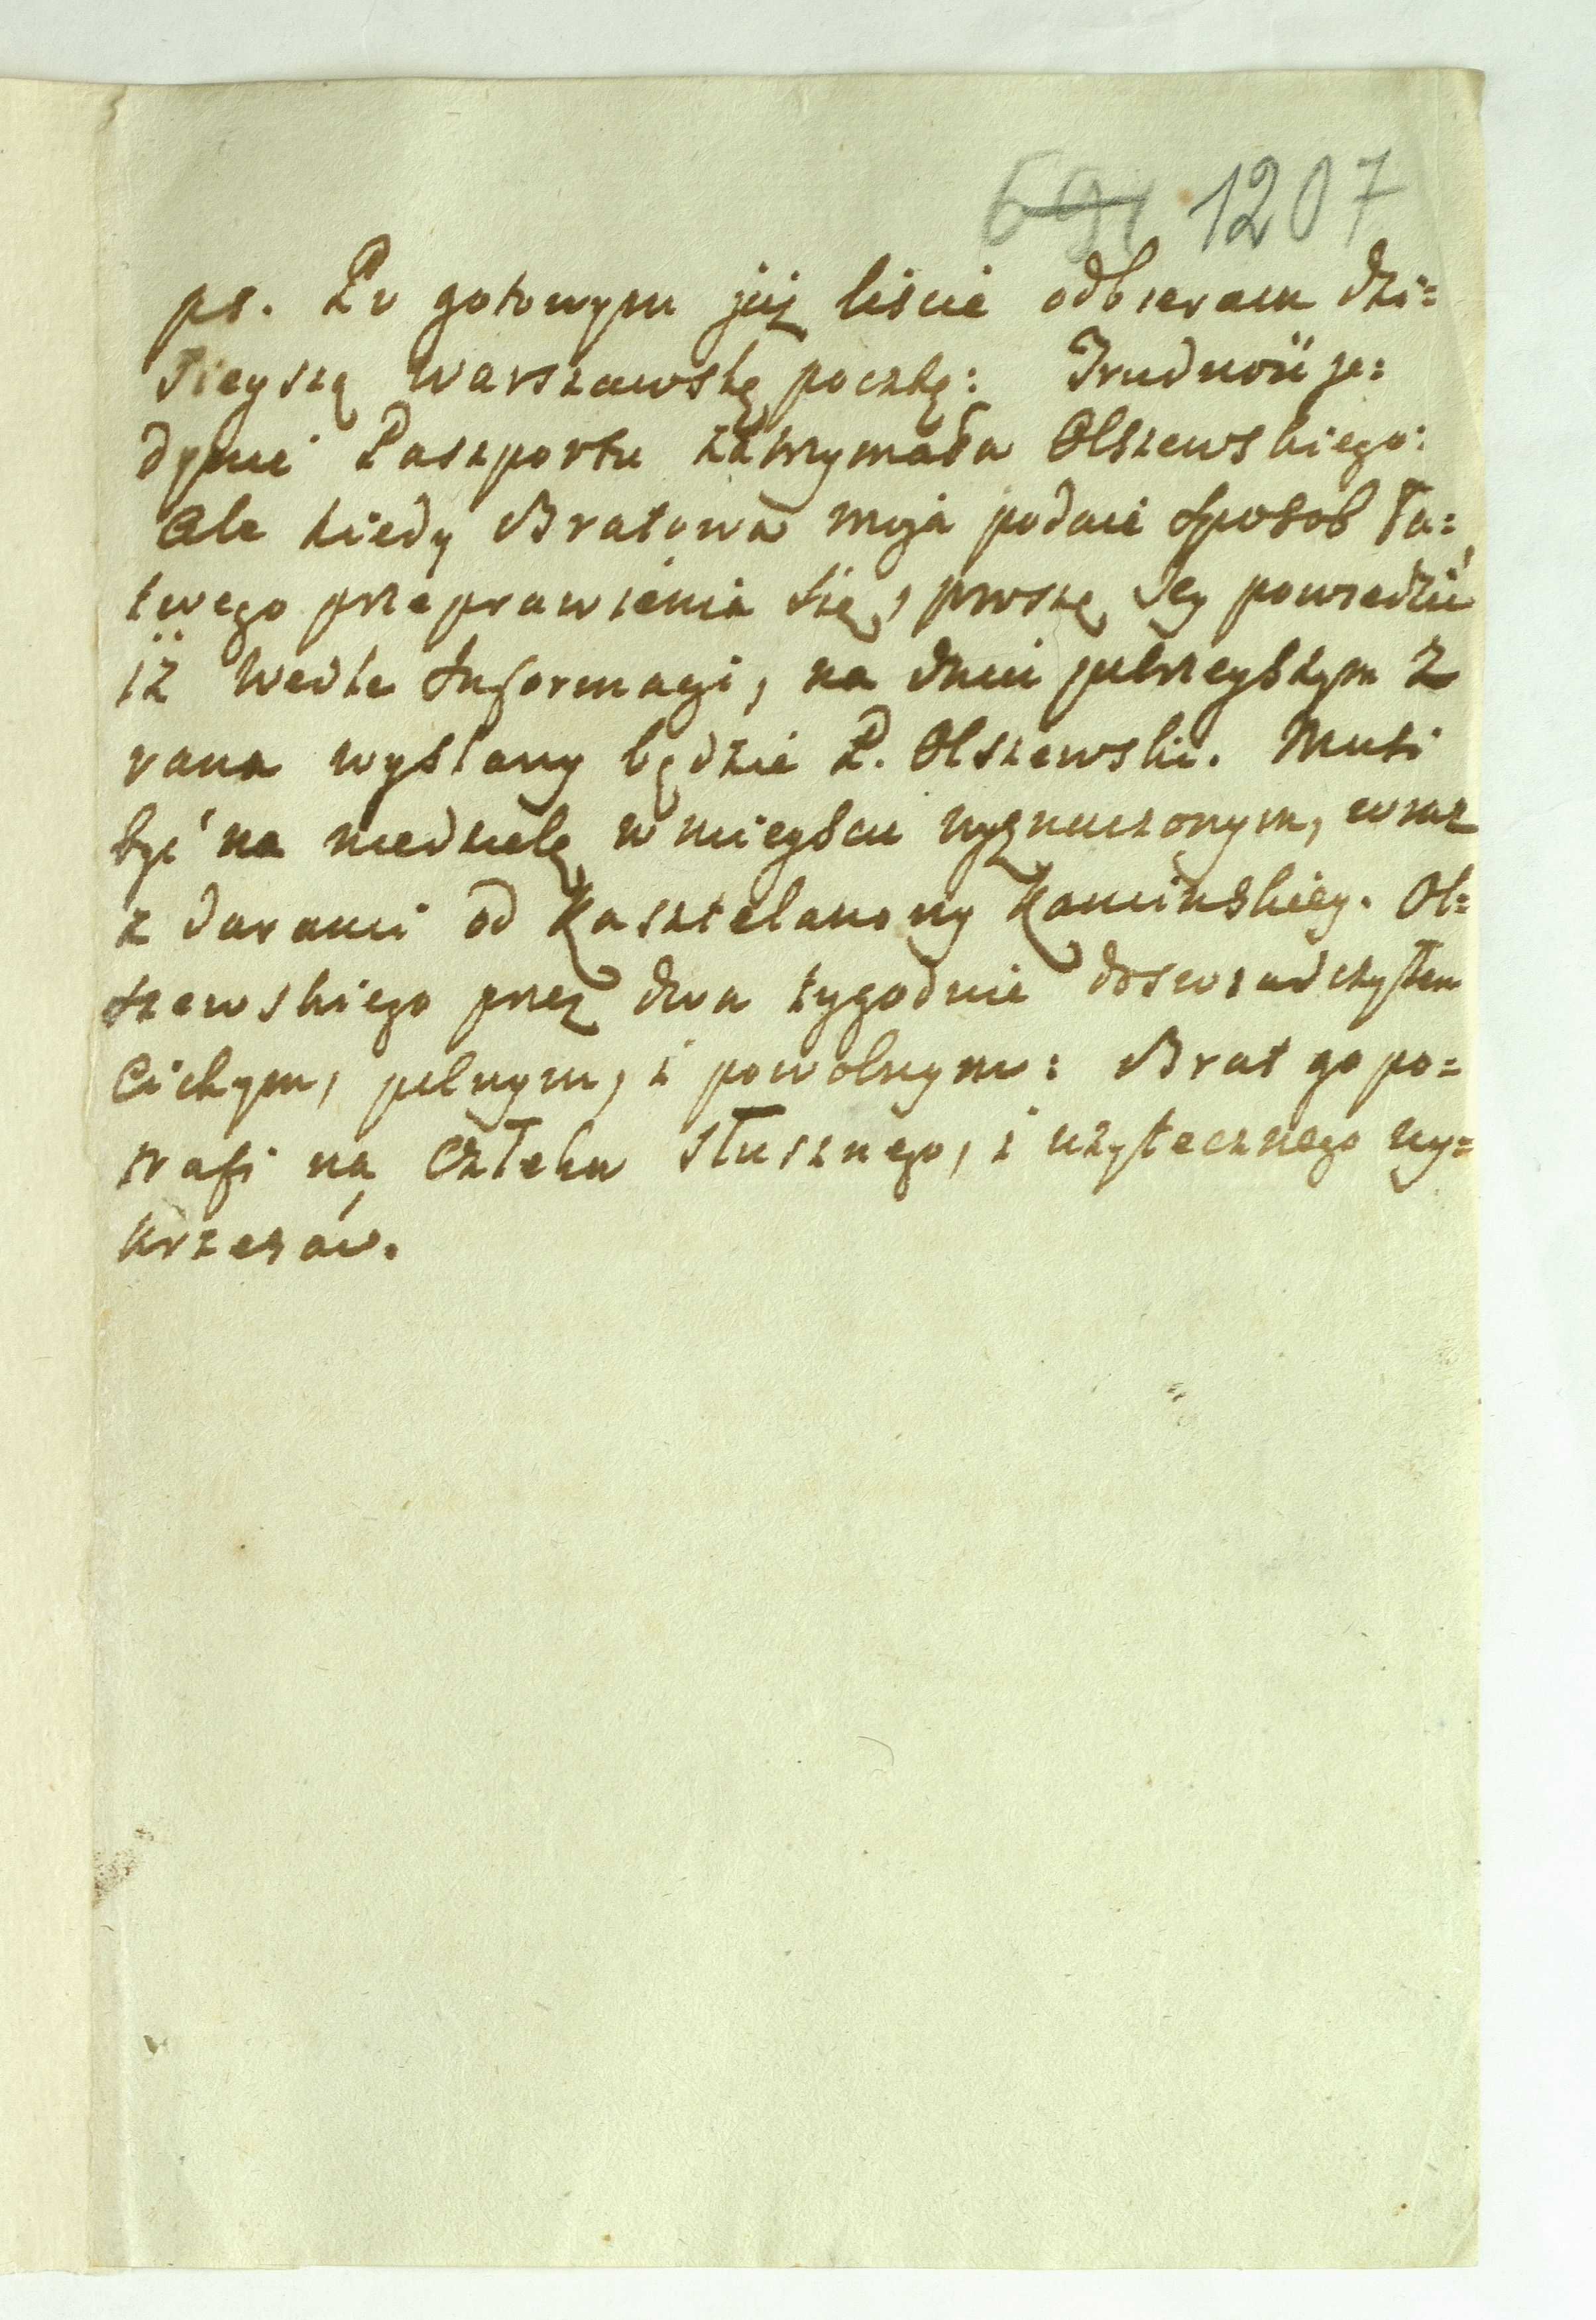 691 1207
ps. Po gotowym już liscie odbieram dzi=
sieyszą Warszawską pocztę: Trudność je=
dynie Paszportu zatrzymała Olszewskiego:
Ale kiedy Bratowa moja podaie sposob ła=
twego przeprawienia się, proszę Jey powiedzieć
iż wedle Informacyi, na dniu jutrzeyszym z
rana wysłany będzie P. Olszewski. Musi
być na niedzielę w mieyscu wyznaczonym, wraz
z darami od Kasztelanowy Kaminskiey. Ol=
szewskiego przez dwa tygodnie doswiadczyłem
Cichym, pilnym, i powolnym: Brat go po=
trafi na człeka słusznego, i użytecznego wy=
krzesać.